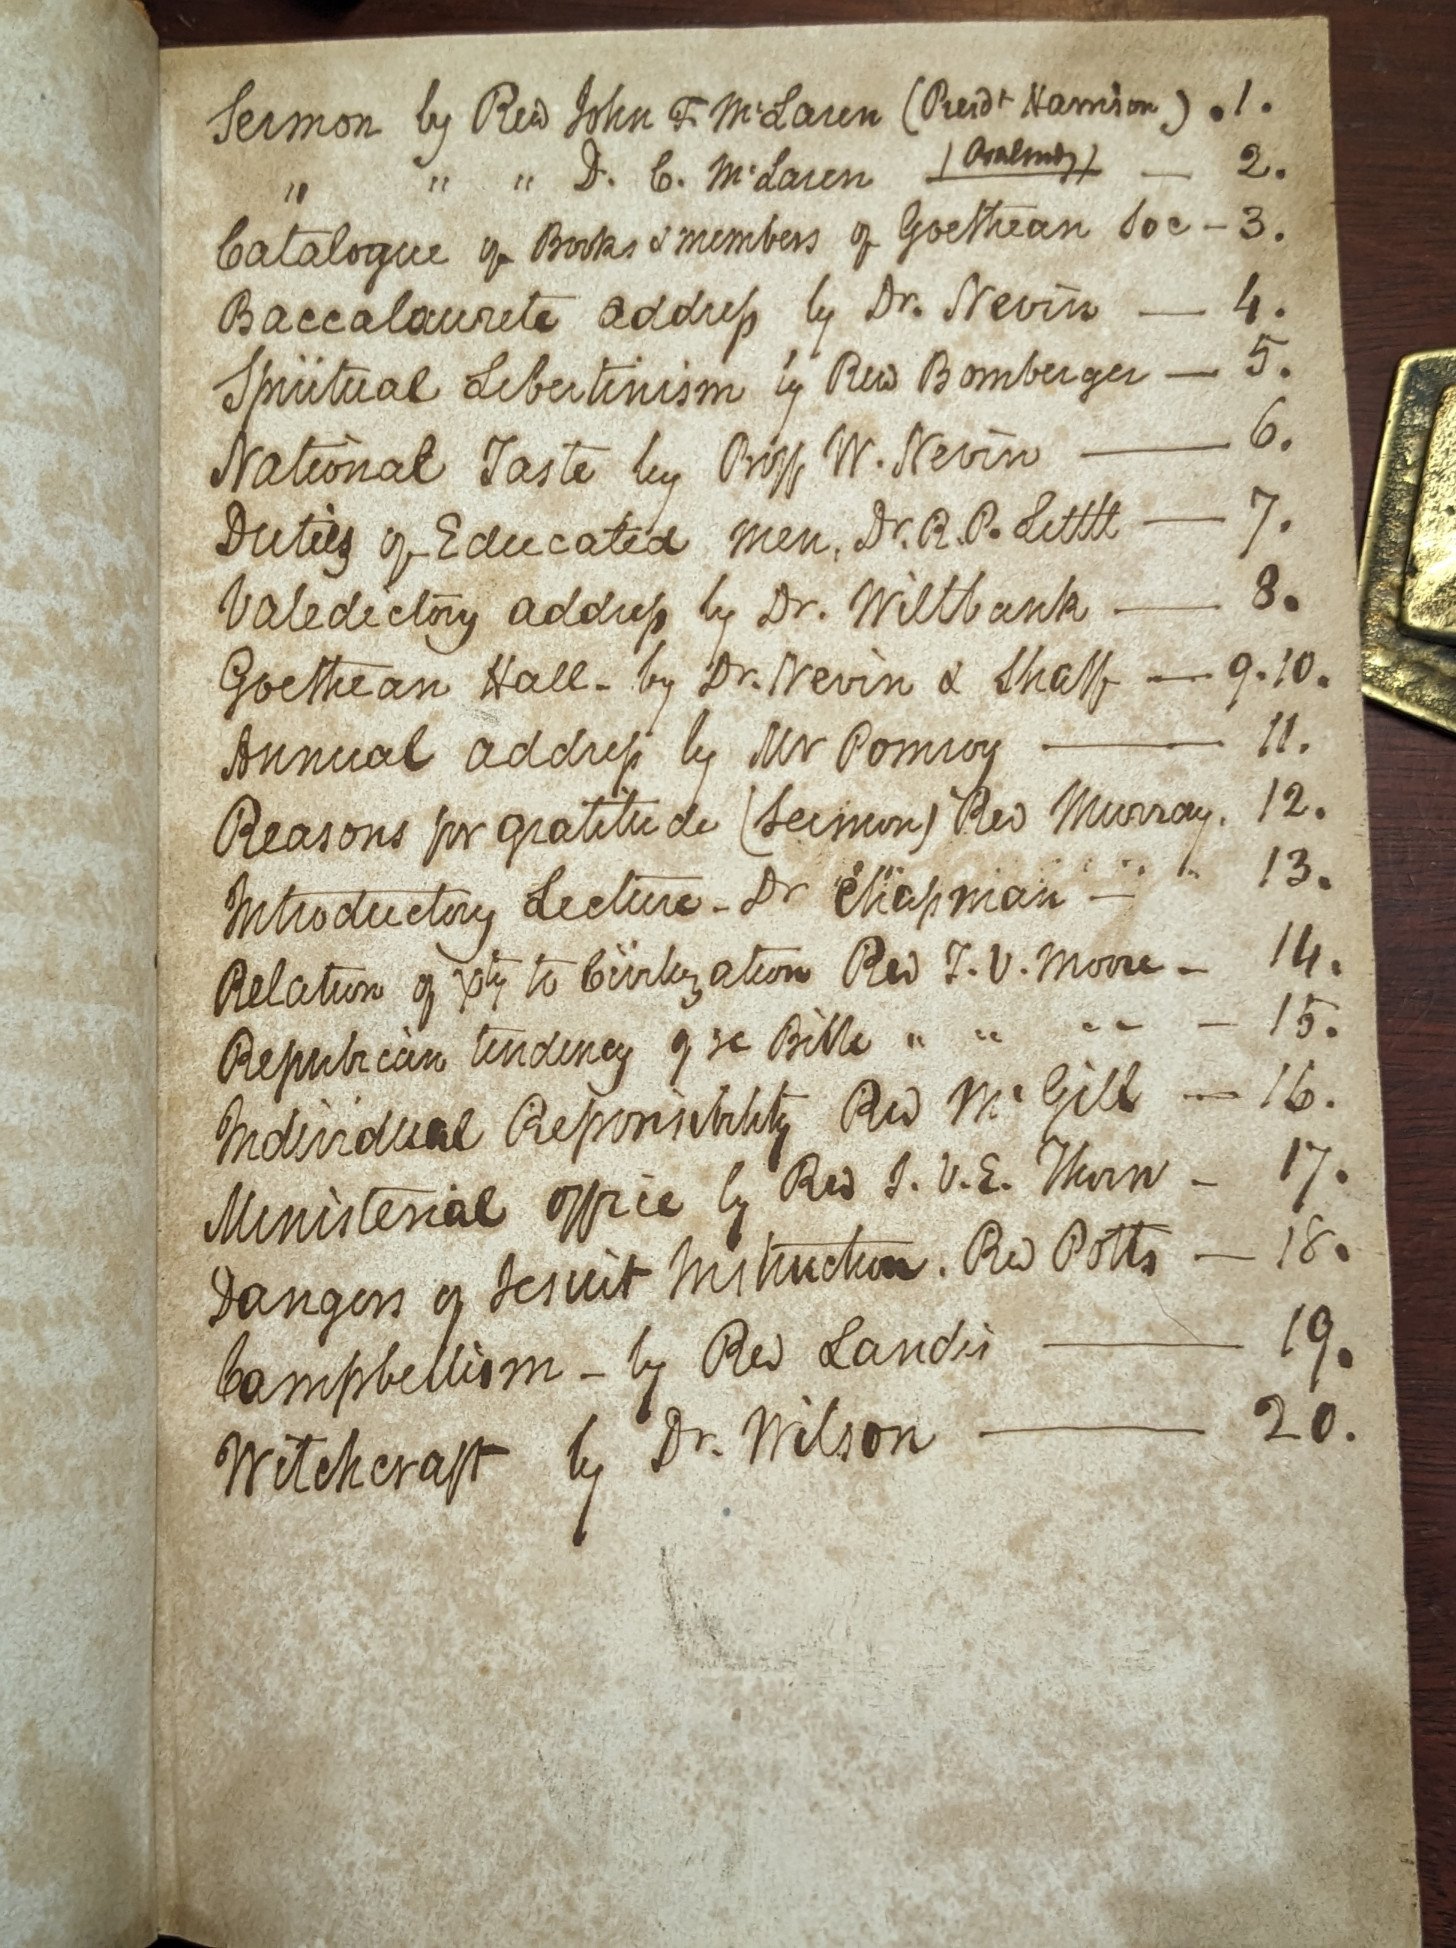 Sermon by Rev John F. McLaren (Presdt Harrison) . 1.
" " " D. C. McLaren (Psalmody) — 2.
Catalogue of Books & members of Goethean Soc — 3.
Baccalaurete address by Dr. Nevin — 4.
Spiritual Libertinism by Rev Bomberger — 5.
National Taste by Proff W. Nevin — 6.
Duties of Educated men, Dr. R. P. Little — 7.
Valedictory address by Dr. Wiltbank — 8.
Goethean Hall - by Dr. Nevin & Shaff — 9.10.
Annual address by Mr Pomroy — 11.
Reasons for gratitude (Sermon) Rev Murray. 12.
Introductory Lecture - Dr Chapman — " " 13.
Relation of Xty to Civilization Rev T. V. Moore — 14.
Republican tendency of ye Bible " " " " — 15.
Individual Reponsibility Rev McGill — 16.
Ministerial office by Rev J. V. E. Thorn — 17.
Dangers of Jesuit Instruction. Rev Potts — 18.
Campbellism — by Rev Landis — 19.
Witchcraft by Dr. Wilson — 20.